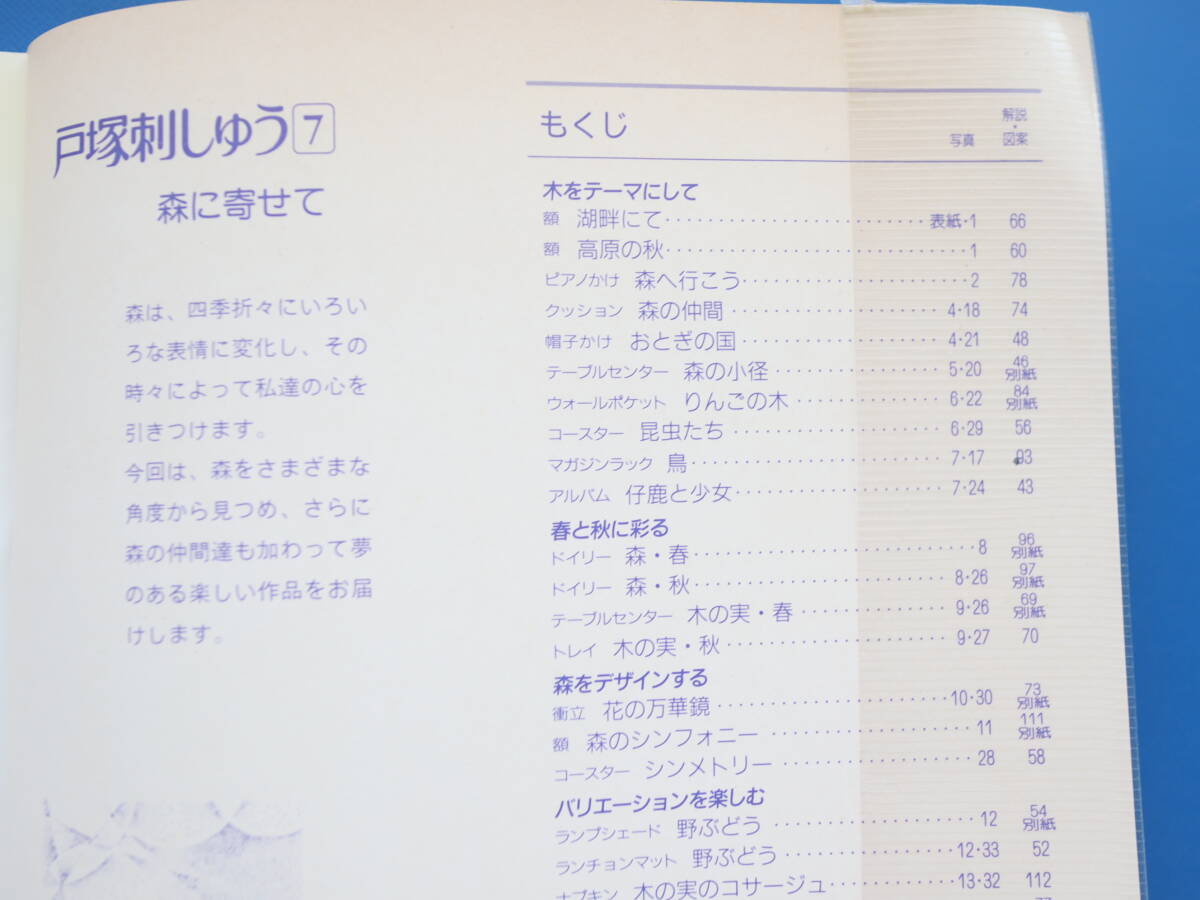 戸塚刺しゅう 7
森に寄せて
森は、四季折々にいろい
ろな表情に変化し、その
時々によって私達の心を
引きつけます。
今回は、森をさまざまな
角度から見つめ、さらに
森の仲間達も加わって夢
のある楽しい作品をお届
けします。
もくじ 写真 解説・図案
木をテーマにして
額 湖畔にて 表紙・1 66
額 高原の秋 1 60
ピアノかけ 森へ行こう 2 78
クッション 森の仲間 4・18 74
帽子かけ おとぎの国 4・21 48
テーブルセンター 森の小径 5・20 46 別紙
ウォールポケット りんごの木 6・22 84 別紙
コースター 昆虫たち 6・29 56
マガジンラック 鳥 7・17 93
アルバム 仔鹿と少女 7・24 43
春と秋に彩る
ドイリー 森・春 8 96 別紙
ドイリー 森・秋 8・26 97 別紙
テーブルセンター 木の実・春 9・26 69 別紙
トレイ 木の実・秋 9・27 70
森をデザインする
衝立 花の万華鏡 10・30 73 別紙
額 森のシンフォニー 11 111 別紙
コースター シンメトリー 28 58
バリエーションを楽しむ
ランプシェード 野ぶどう 12 54 別紙
ランチョンマット 野ぶどう 12・33 52
ナプキン 木の実のコサージュ 13・32 112